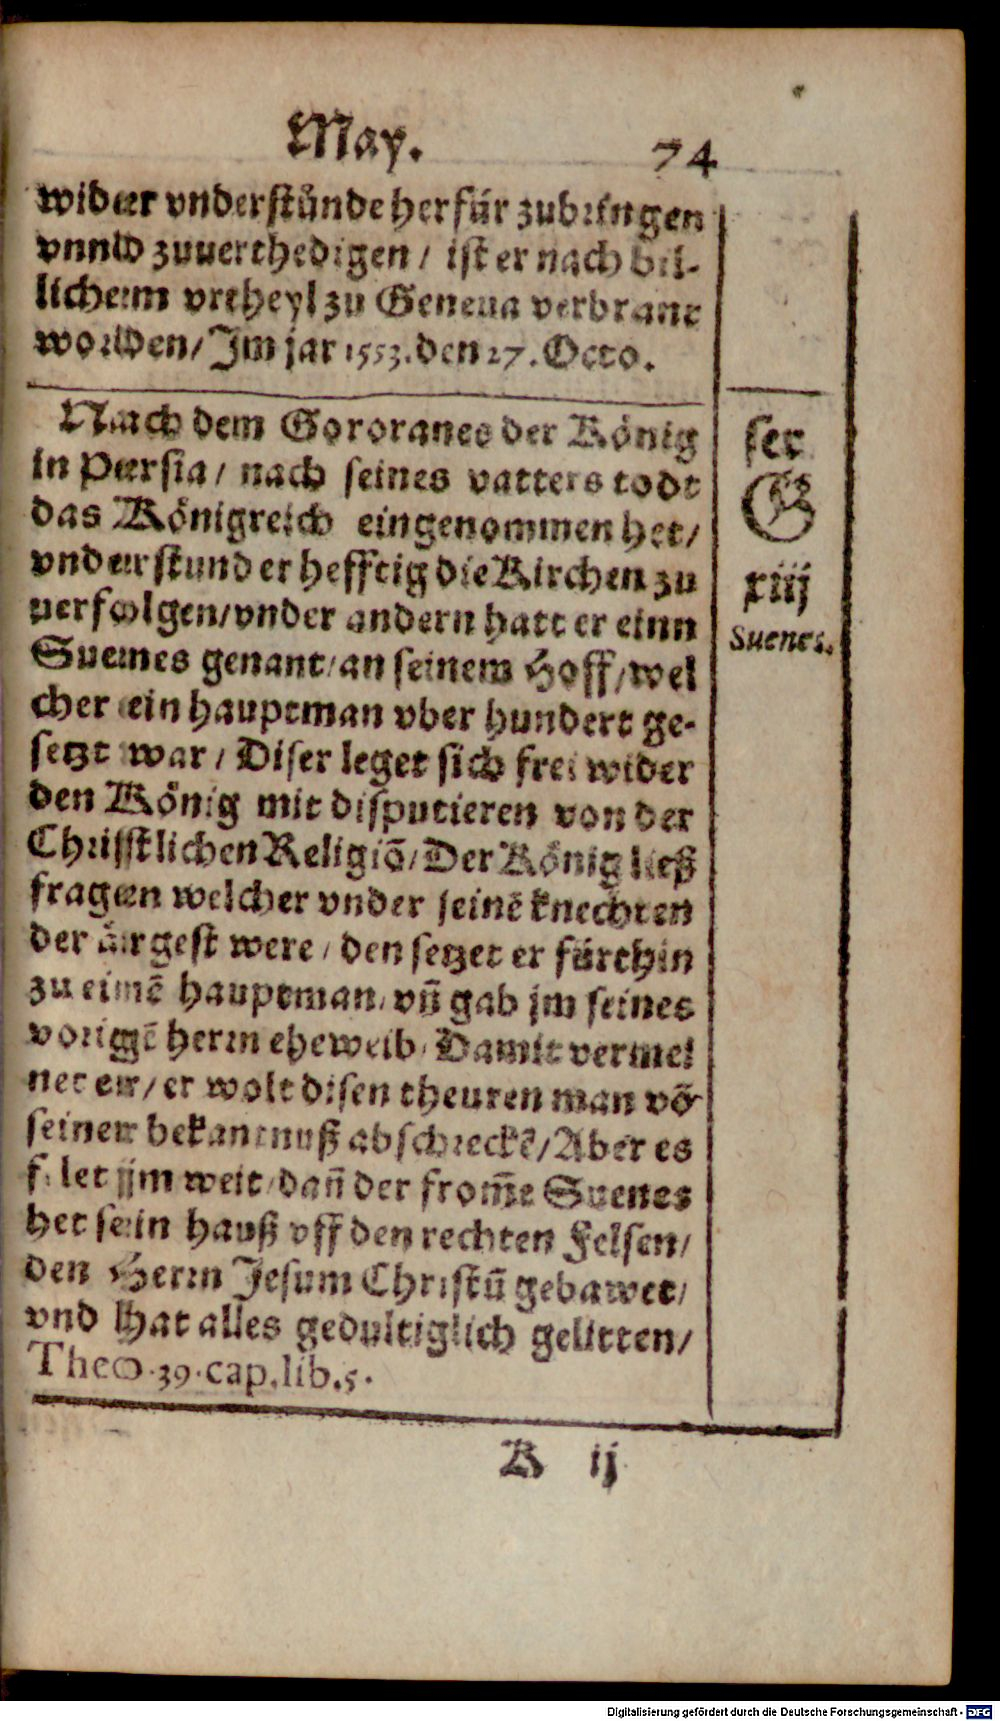 May. 74
wider vnderstünde herfür zubringen
vnnd zuuerthedigen / ist er nach bil-
lichem vrtheyl zu Geneua verbrant
worden / Im jar 1553. den 27. Octo.
Nach dem Gororanes der König
in Persia / nach seines vatters todt
das Königreich eingenommen het /
vnderstund er hefftig die Kirchen zu
uerfolgen / vnder andern hatt er einn
Suenes genant / an seinem Hoff / wel
cher ein hauptman vber hundert ge-
setzt war / Diser leget sich frei wider
den König mit disputieren von der
Christlichen Religiō / Der König ließ
fragen welcher vnder seinē knechten
der ärgest were / den setzet er fürthin
zu eimē hauptman / vñ gab jm seines
vorigē herrn eheweib / Damit vermei
net er / er wolt disen theuren man vō
seiner bekantnuß abschreckē / Aber es
felet jm weit / dañ der from̄e Suenes
het sein hauß vff den rechten Felsen /
den Herrn Jesum Christū gebawet /
vnd hat alles gedultiglich gelitten /
Theo. 39. cap. lib. 5.
ser
G
xiij
Suenes.
K ij
Digitalisierung gefördert durch die Deutsche Forschungsgemeinschaft - DFG